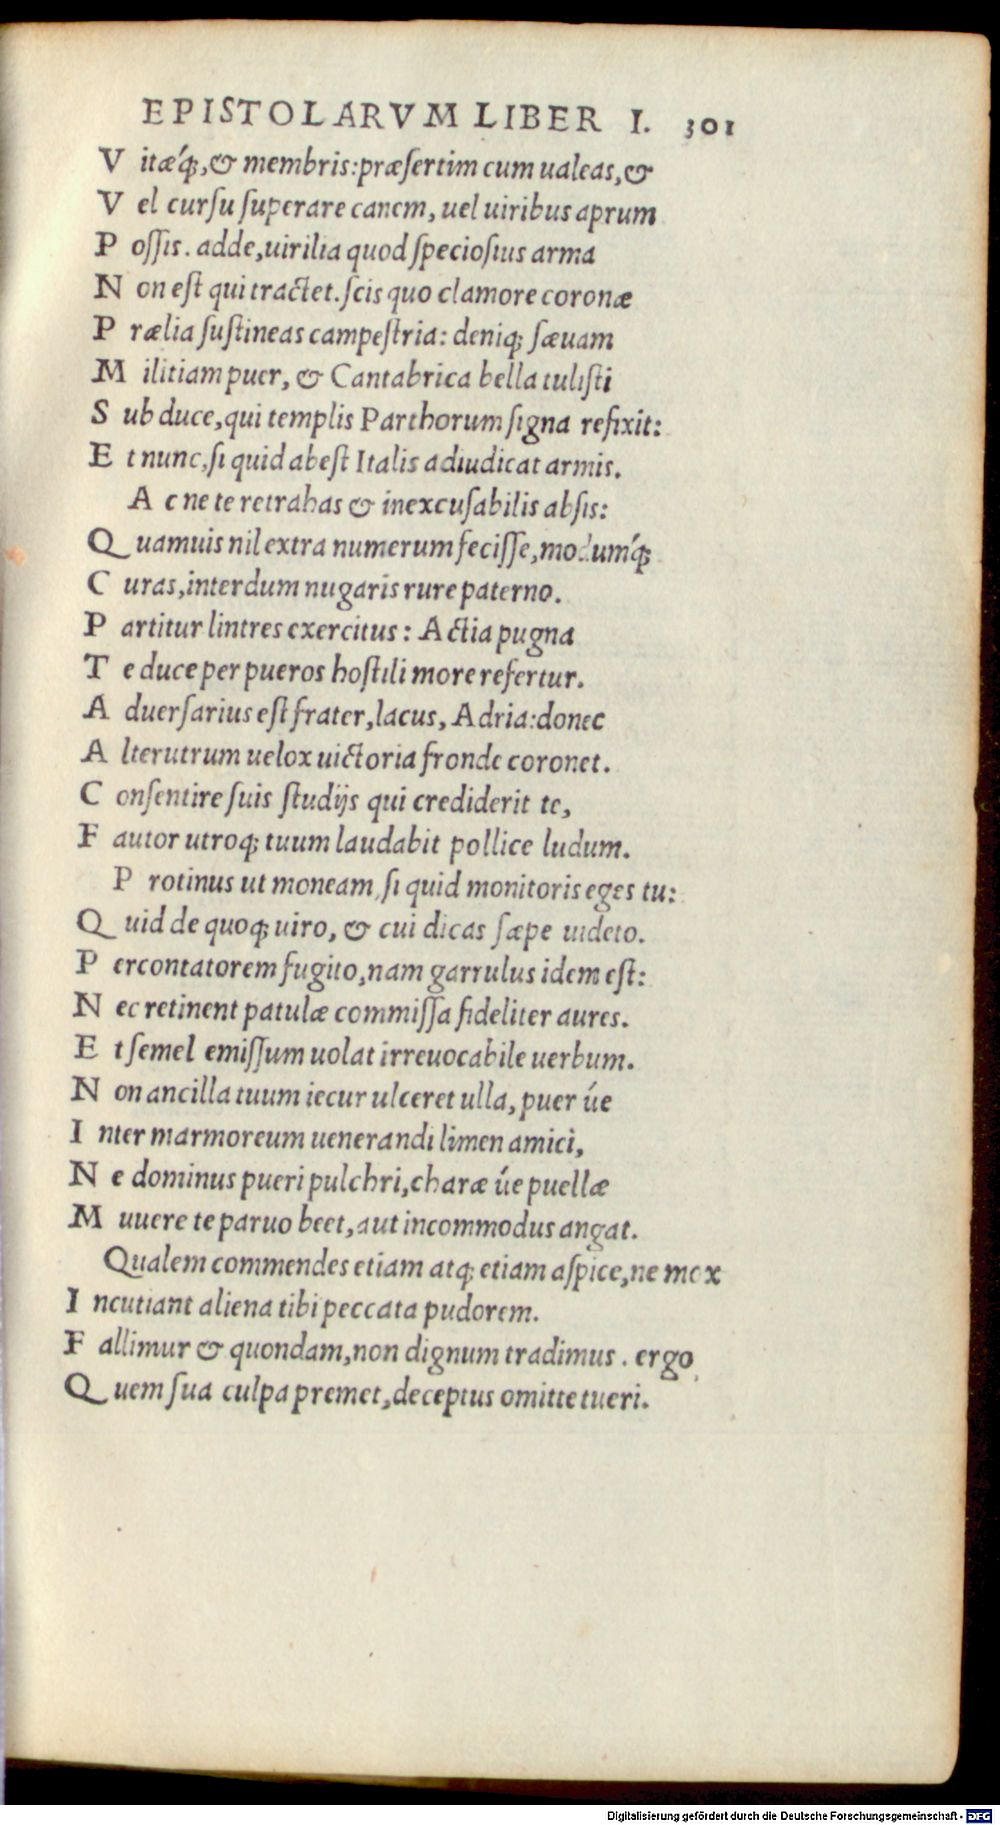 EPISTOLARVM LIBER I. 301
V itæq́;,& membris:præſertim cum ualeas,&
V el curſu ſuperare canem, uel uiribus aprum
P oſſis. adde,uirilia quod ſpecioſius arma
N on eſt qui tractet.ſcis quo clamore coronæ
P rælia ſuſtineas campeſtria: deniq; ſæuam
M ilitiam puer, & Cantabrica bella tuliſti
S ub duce,qui templis Parthorum ſigna refixit:
E t nunc,ſi quid abeſt Italis adiudicat armis.
A c ne te retrahas & inexcuſabilis abſis:
Q uamuis nil extra numerum feciſſe,modumq́;
C uras,interdum nugaris rure paterno.
P artitur lintres exercitus: Actia pugna
T e duce per pueros hoſtili more refertur.
A duerſarius eſt frater,lacus, Adria:donec
A lterutrum uelox uictoria fronde coronet.
C onſentire ſuis ſtudijs qui crediderit te,
F autor utroq; tuum laudabit pollice ludum.
P rotinus ut moneam,ſi quid monitoris eges tu:
Q uid de quoq; uiro, & cui dicas ſæpe uideto.
P ercontatorem fugito,nam garrulus idem eſt:
N ec retinent patulæ commiſſa fideliter aures.
E t ſemel emiſſum uolat irreuocabile uerbum.
N on ancilla tuum iecur ulceret ulla, puer úe
I nter marmoreum uenerandi limen amici,
N e dominus pueri pulchri,charæ úe puellæ
M uuere te paruo beet, aut incommodus angat.
Qualem commendes etiam atq; etiam aſpice,ne mox
I ncutiant aliena tibi peccata pudorem.
F allimur & quondam,non dignum tradimus. ergo
Q uem ſua culpa premet,deceptus omitte tueri.
Digitalisierung gefördert durch die Deutsche Forschungsgemeinschaft - DFG